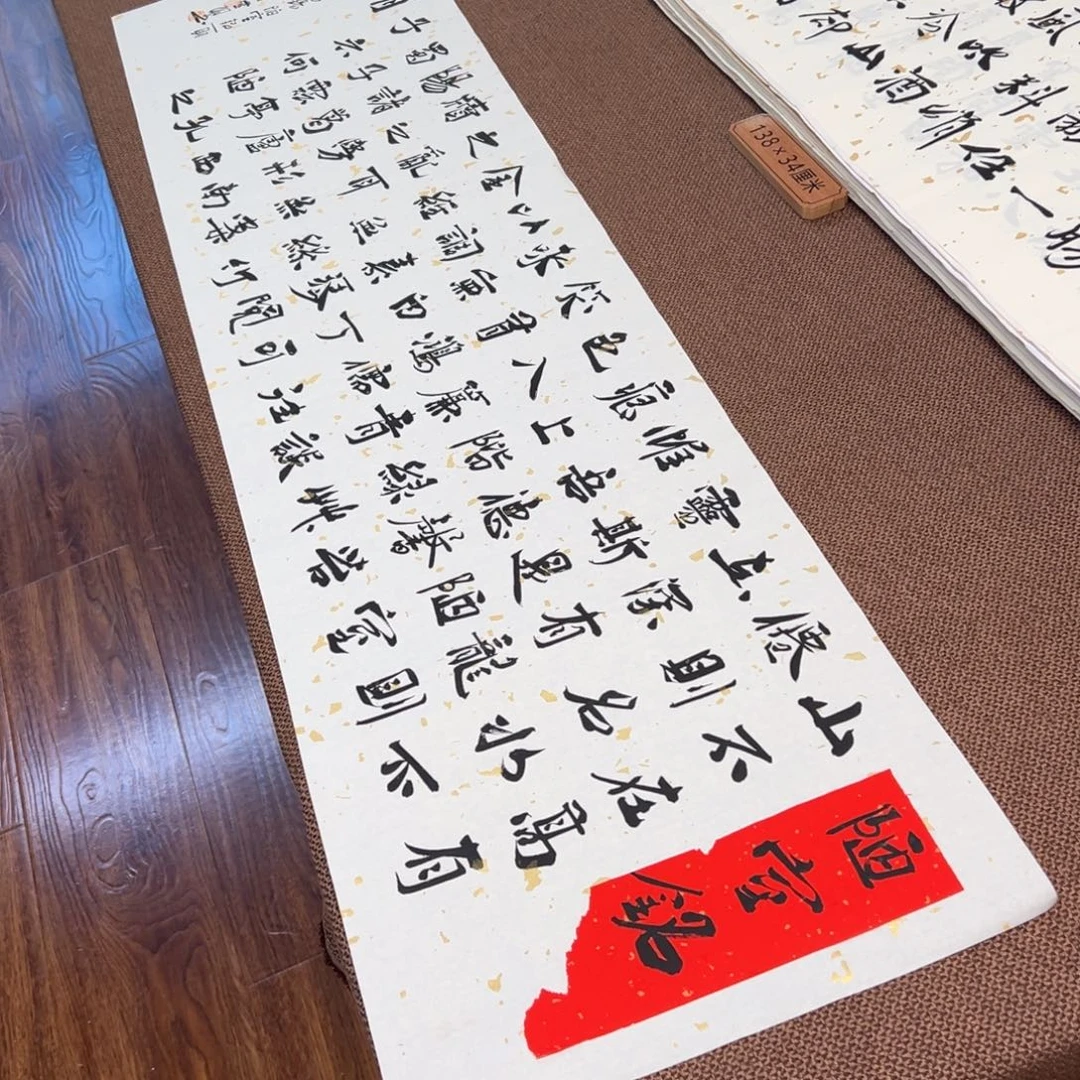 陋室銘
山不在高有
僊則名水不
在深有龍則
靈斯是陋室
惟吾德馨苔
痕上階綠艸
色入簾青談
笑有鴻儒往
來無白丁可
以調素琴閱
金經無絲竹
之亂耳無案
牘之勞形南
陽諸葛廬西
蜀子雲亭孔
子云何陋之
138×34厘米